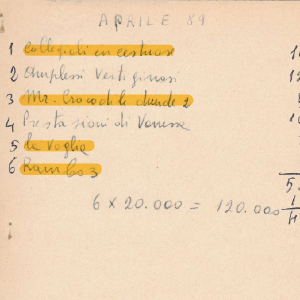 APRILE 89
1 Collegiali incestuose 10
2 Amplessi vertiginosi 12
3 Mr. Crocodile dunde 2
4 Prestazioni di Vanessa
5 la Voglia
6 Rambo 3
5.
6 x 20.000 = 120.000